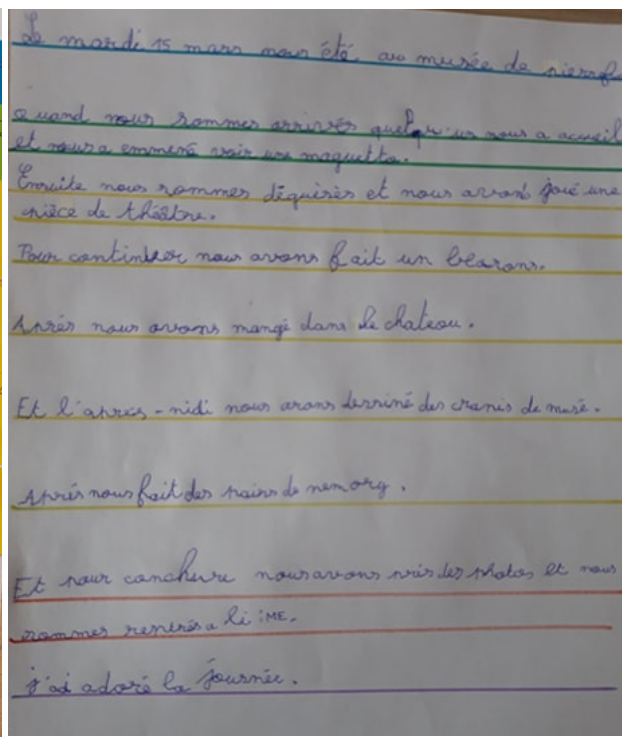 Le mardi 15 mars nous été au musée de pierref
Quand nous sommes arrivés quelqu'un nous a accueil
et nous a emmené voir une maquette.
Ensuite nous sommes déguisés et nous avons joué une
pièce de théâtre.
Pour continuer nous avons fait un
Après nous avons mangé dans le chateau.
Et l'après-midi nous avons dessiné des de musé.
Après nous fait des de memory.
Et pour conclure nous avons pris des photos et nous
sommes rentrés a l'IME.
j'ai adoré la journée.